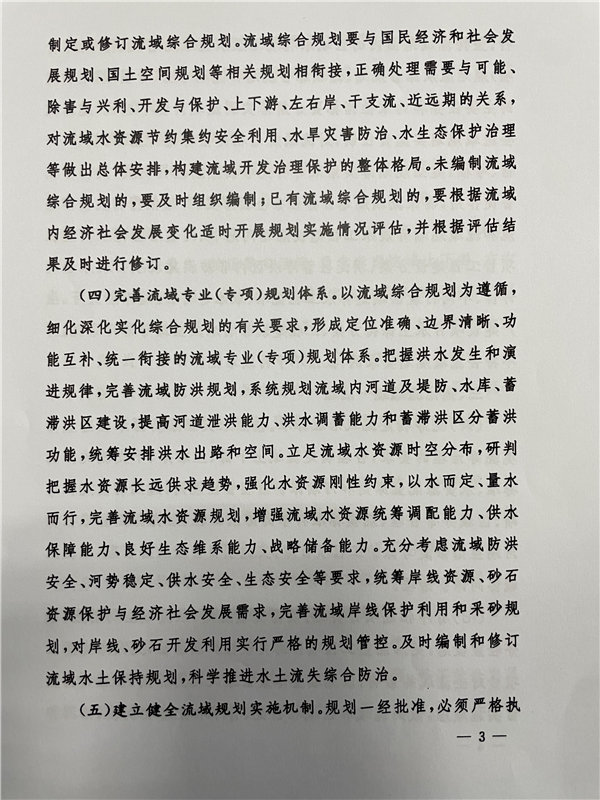 制定或修订流域综合规划。流域综合规划要与国民经济和社会发
展规划、国土空间规划等相关规划相衔接,正确处理需要与可能、
除害与兴利、开发与保护、上下游、左右岸、干支流、近远期的关系,
对流域水资源节约集约安全利用、水旱灾害防治、水生态保护治理
等做出总体安排,构建流域开发治理保护的整体格局。未编制流域
综合规划的,要及时组织编制;已有流域综合规划的,要根据流域
内经济社会发展变化适时开展规划实施情况评估,并根据评估结
果及时进行修订。
(四)完善流域专业(专项)规划体系。以流域综合规划为遵循,
细化深化实化综合规划的有关要求,形成定位准确、边界清晰、功
能互补、统一衔接的流域专业(专项)规划体系。把握洪水发生和演
进规律,完善流域防洪规划,系统规划流域内河道及堤防、水库、蓄
滞洪区建设,提高河道泄洪能力、洪水调蓄能力和蓄滞洪区分蓄洪
功能,统筹安排洪水出路和空间。立足流域水资源时空分布,研判
把握水资源长远供求趋势,强化水资源刚性约束,以水而定、量水
而行,完善流域水资源规划,增强流域水资源统筹调配能力、供水
保障能力、良好生态维系能力、战略储备能力。充分考虑流域防洪
安全、河势稳定、供水安全、生态安全等要求,统筹岸线资源、砂石
资源保护与经济社会发展需求,完善流域岸线保护利用和采砂规
划,对岸线、砂石开发利用实行严格的规划管控。及时编制和修订
流域水土保持规划,科学推进水土流失综合防治。
(五)建立健全流域规划实施机制。规划一经批准,必须严格执
— 3 —